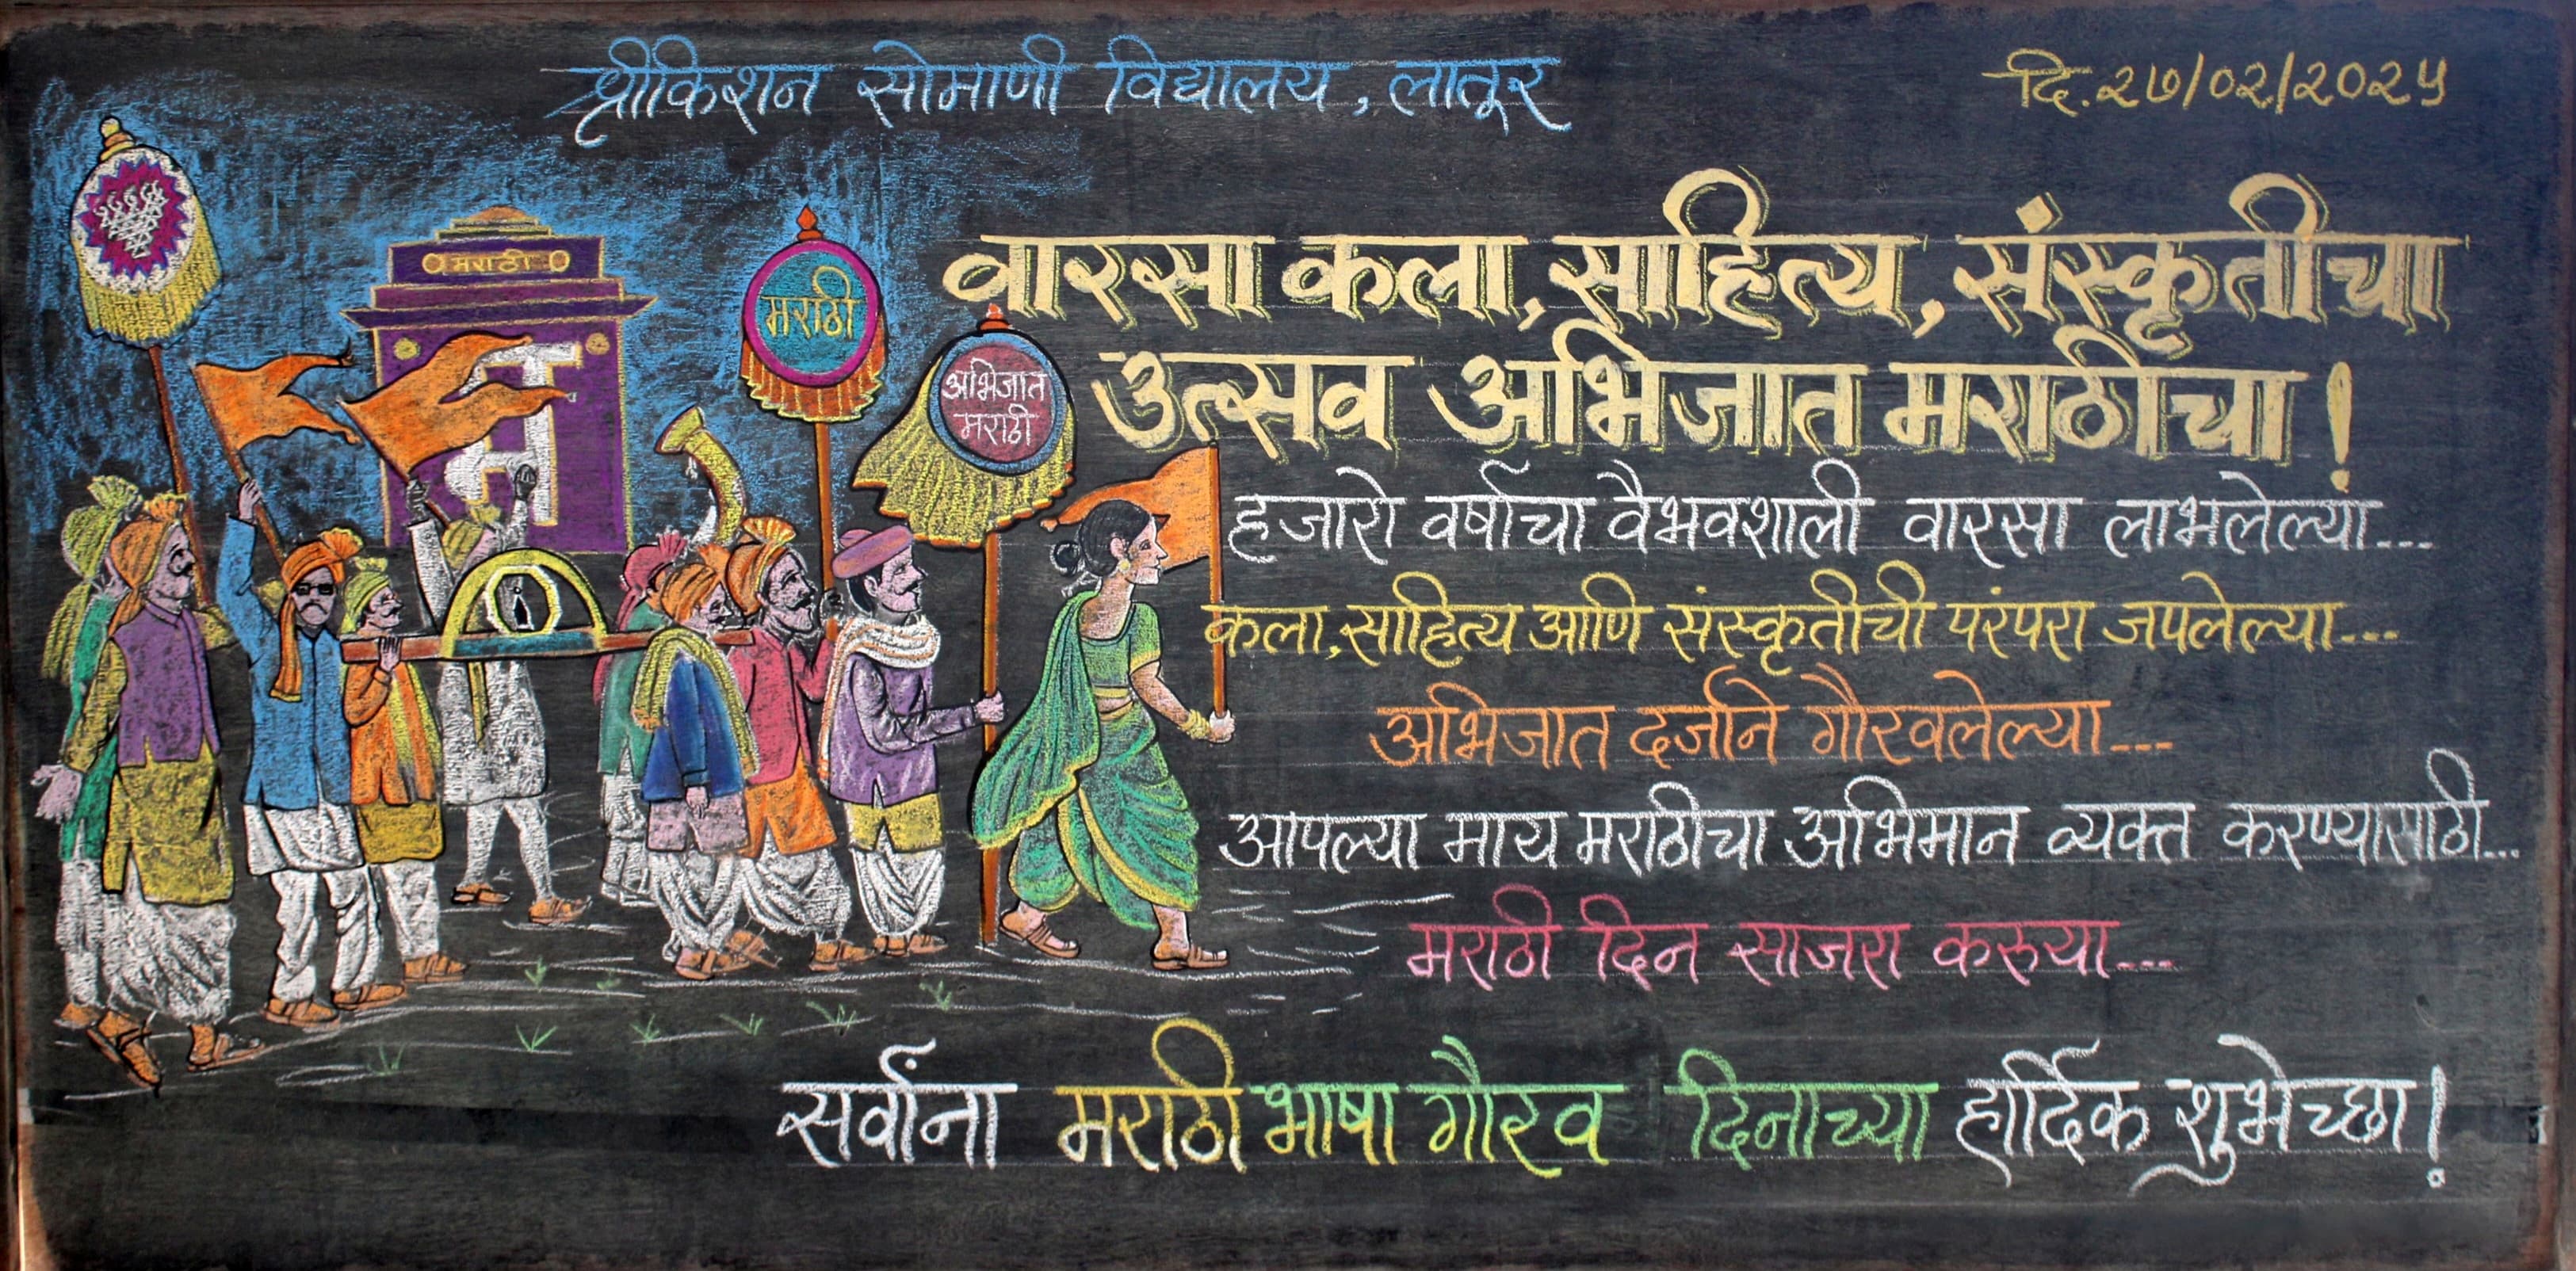 श्रीकिशन सोमाणी विद्यालय, लातूर
दि. २७/०२/२०२५
वारसा कला, साहित्य, संस्कृतीचा
उत्सव अभिजात मराठीचा!
हजारो वर्षाचा वैभवशाली वारसा लाभलेल्यां...
कला, साहित्य आणि संस्कृतीची परंपरा जपलेल्या...
अभिजात दर्जाने गौरवलेल्या...
आपल्या माय मराठीचा अभिमान व्यक्त करण्यासाठी...
मराठी दिन साजरा करूया...
सर्वांना मराठी भाषा गौरव दिनाच्या हार्दिक शुभेच्छा!
मराठी
म
मराठी
अभिजात
मराठी